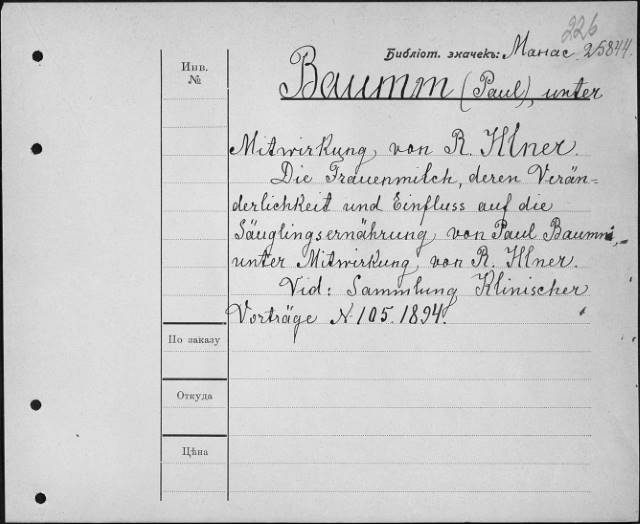 226
Библіот. значекъ: Манас. 25844.
Инв.
№
Baumm (Paul), unter
Mitwirkung von R. Illner.
Die Frauenmilch, deren Verän-
derlichkeit und Einfluss auf die
Säuglingsernährung von Paul Baumm,
unter Mitwirkung von R. Illner.
Vid: Sammlung Klinischer
Vorträge N. 105. 1894.
По заказу
Откуда
Цѣна